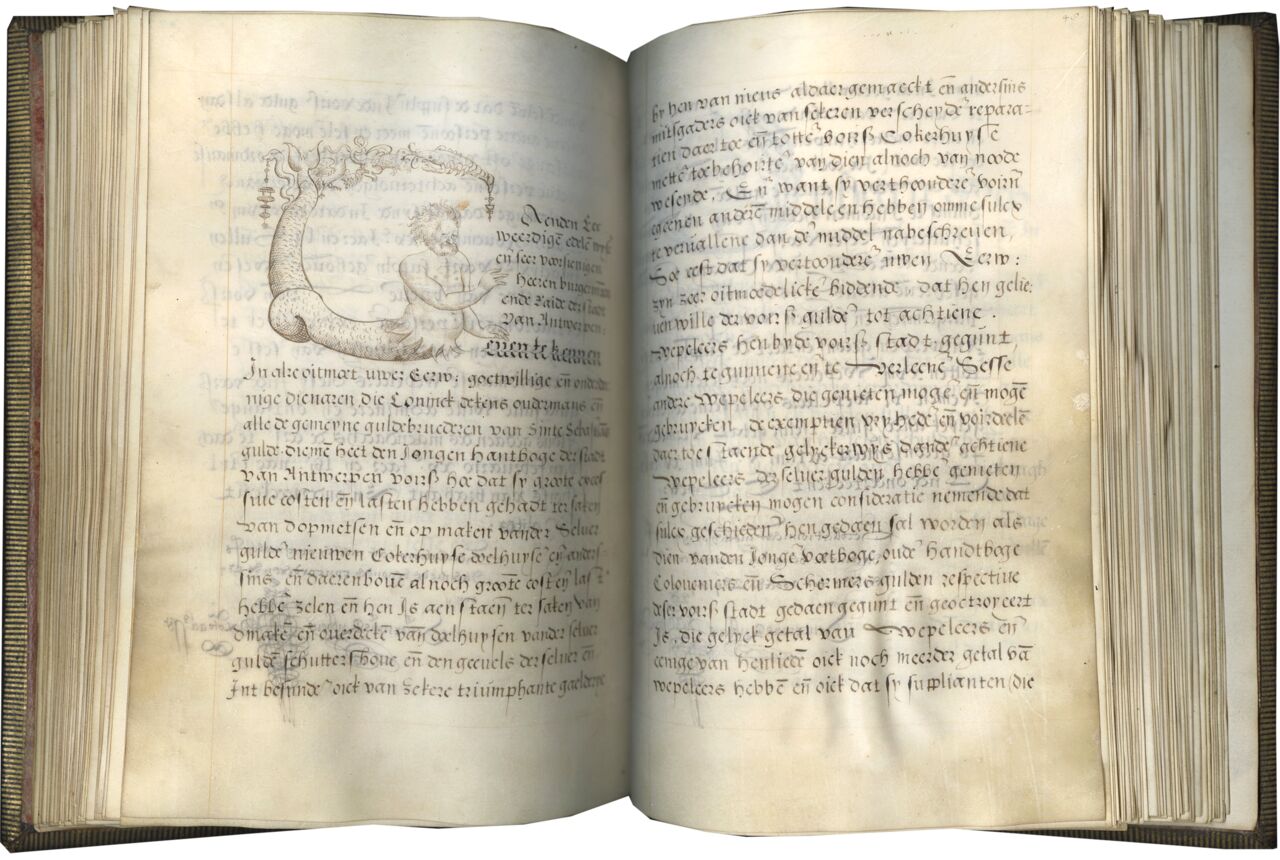 Aenden Eer
weerdigē edelē wyse
eñ seer voorsienigen
heeren burgermrēn
ende Raide der stadt
van Antwerpen
Geuen te kennen
In alre oitmoet uwer Eerw: goetwillige eñ onderda
nige dienaren die Coninck dekens oudermans eñ
alle de gemeyne guldebruederen van Sinte Sebastiaens
gulde diemē heet den Jongen Hantboge der stadt
van Antwerpen voirß hoe dat sy groote exces
siue costen eñ lasten hebben gehadt ter saken
van dopmetsen eñ op maken vander seluer
guldē nieuwen Cokerhuyse doelhuyse eñ anders=
sins eñ daerenbouē alnoch groote cost eñ last
hebbē zelen eñ hen Is aenstaen ter saken van
dmakē eñ ouerdeckē van doelhuysen vander seluer
guldē schuttershoue, en den geevels der seluer eñ
Int besundē oick van zekere triumphante gaelderye
48
by hen van nieus aldaer gemaeckt eñ andersins
mitsgaders oick van sekeren verscheyde repara=
tien daer toe eñ tottē voirß Cokerhuyse
mettē toebehoirtē van dien alnoch van noode
wesende, Eñ want sy verthoonderē voirñ
egeenen anderē middel en hebben omme sulcx
te veruallene dan dē middel nabeschreuen,
Soe eest dat sy vertoonderē uwen Eerw:
zyn zeer oitmoedelickē biddende dat hen gelie=
uen wille der voirß guldē tot achtiene
wepeleers hen by de voirß stadt gegunt
alnoch te gunnene eñ te verleenē Sesse
andere wepeleers die genieten mogē eñ mogē
gebruycken de exemptien vryhede eñ voirdeelē
daer toe staende gelyckerwys dandē achtiene
wepeleers der seluer gulden hebbē genieten
eñ gebruycken mogen consideratie nemende dat
sulcx geschiedenē hen gedaen sal worden als
dien vanden Jongē voetboge, oudē handtboge
Coloueniers eñ Schermers gulden respectiue
deser voirß stadt gedaen gegunt eñ geoctroyeert
Is, die gelyck getal van wepeleers eñ
eenige van henliedē oick noch meerder getal vā
wepeleers hebbē eñ oick dat sy supplianten (die